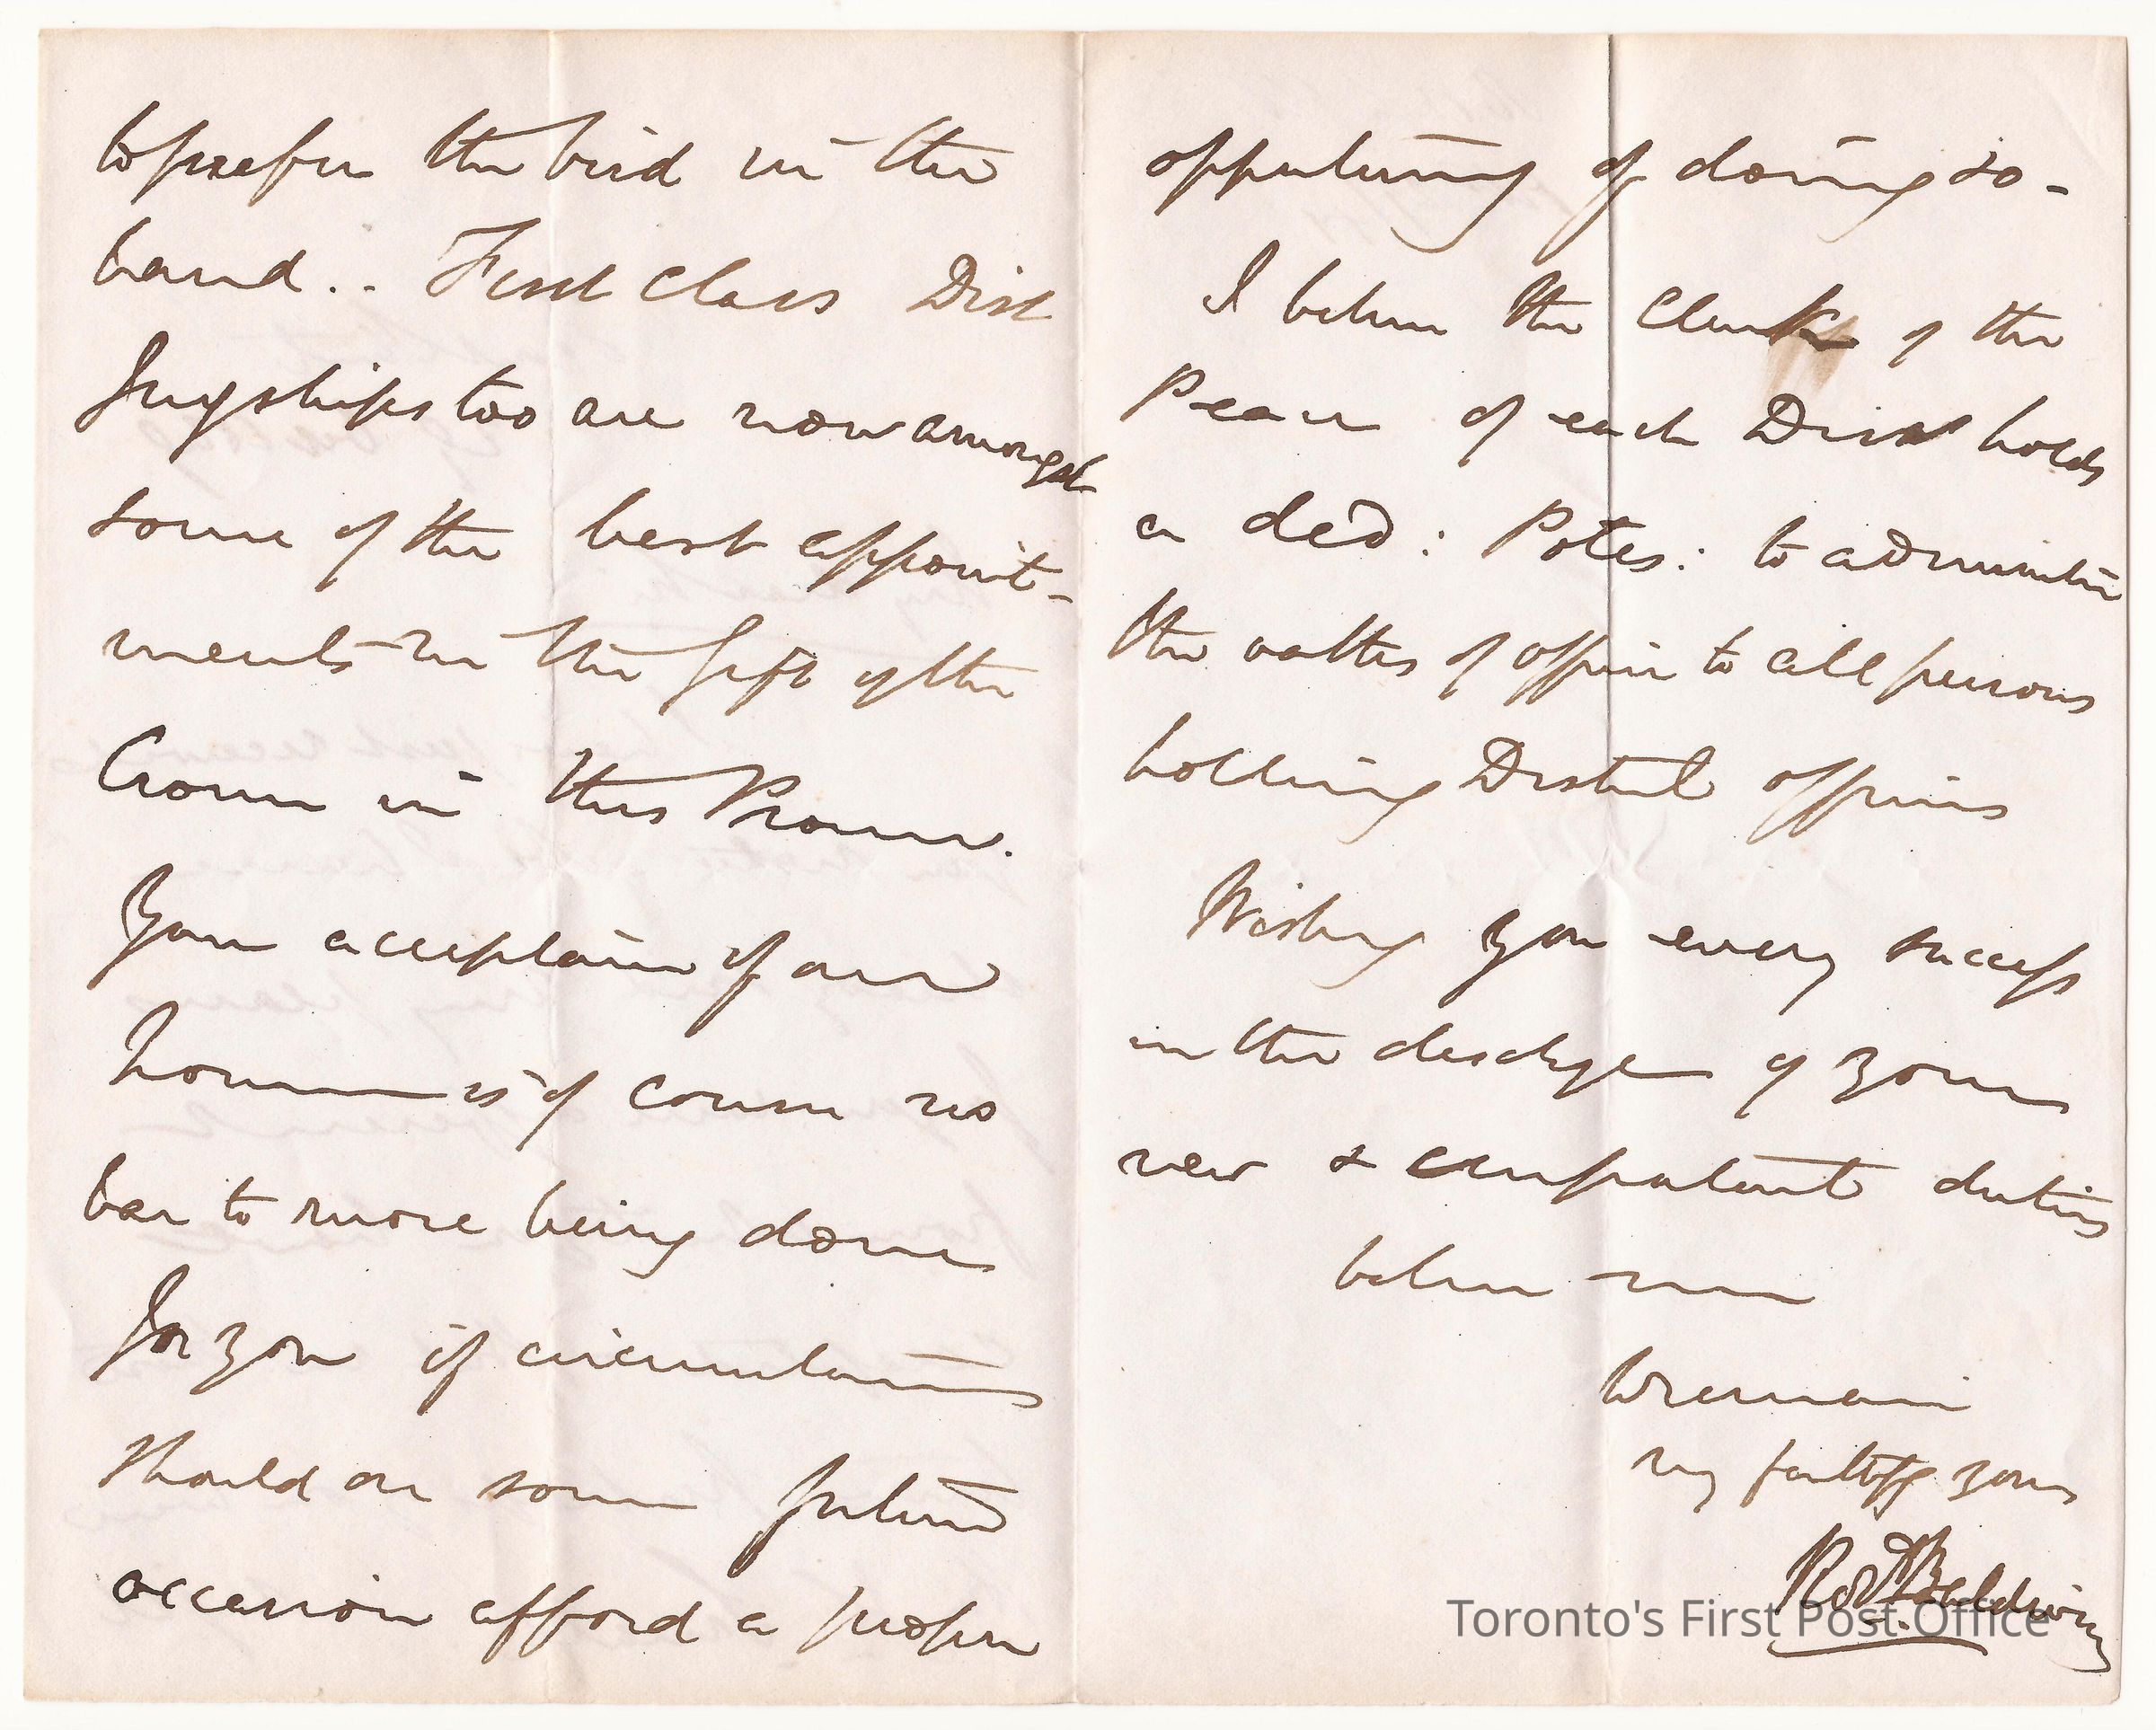 to prefer the bird in the
hand.. First Class Dist
Jugships too are now amongst
some of the best appoint-
ments in the gift of the
Crown in this Province.
Your acceptance of one
however is of course no
bar to more being done
for you if circumstances
should on some future
occasion afford a proper
opportunity of doing so -
I believe the Clerk of the
Peace of each Dist holds
a ded: Potes: to administer
the oaths of office to all persons
holding District offices
Wishing you every success
in the dischge of your
new & important duties
believe me
to remain
vy faithffy yours
Robt Baldwin
Toronto's First Post Office